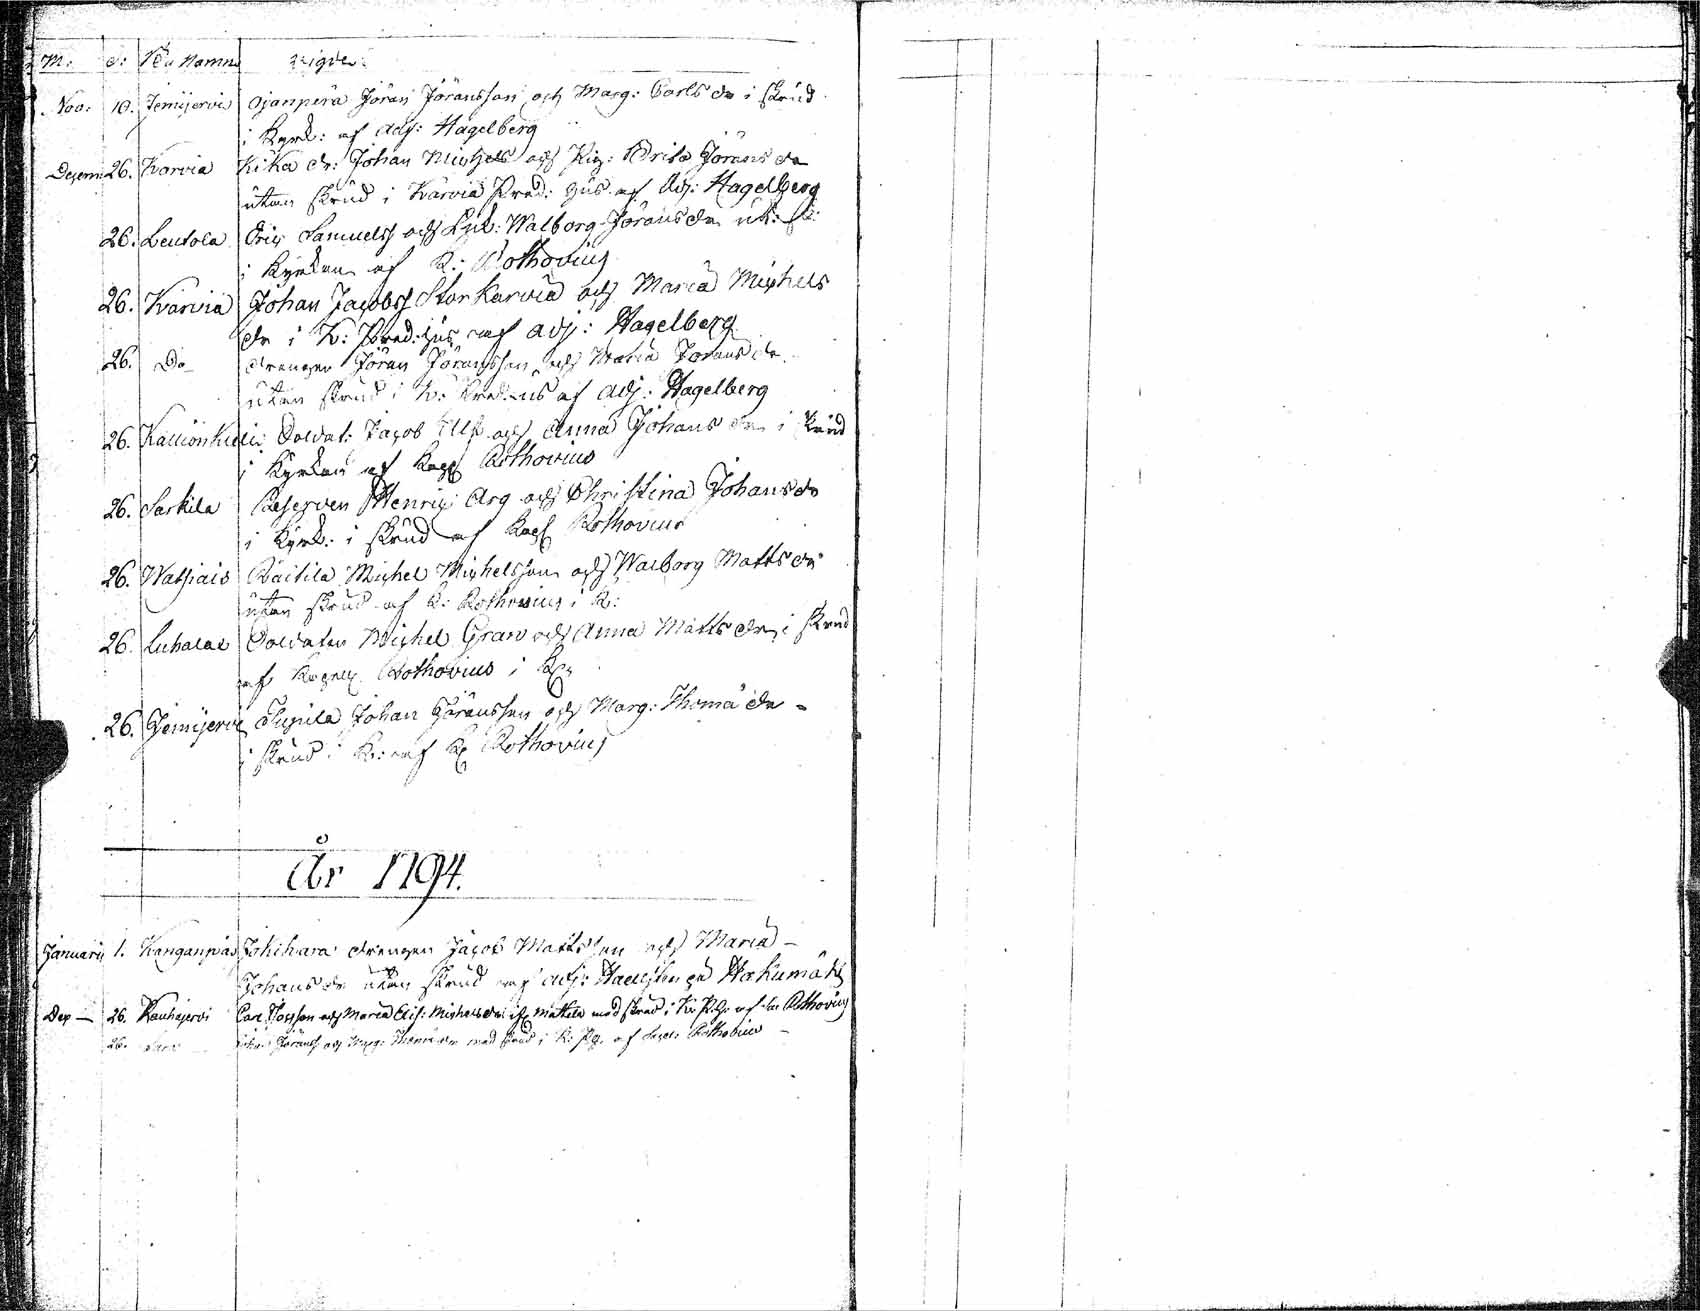 M: d: Bÿ Namn vigde
Nov: 10. Jemijervi Ojanperä Jöran Jöransson och Marg: Carls dr i skrud
i Kyrk: af Adj: Hagelberg
Decem: 26. Karvia Kika dr: Johan Michels och Pig: Brita Jörans dr
utan skrud i Karvia Pred: hus af Adj: Hagelberg
26. Leutola Eric Samuelss och Walborg Jörans dr ut: sk:
i Kyrkan af K: Rothovius
26. Karvia Johan Jacobss Storkarvia och Maria Michels
dr i K: Pred: hus af Adj: Hagelberg
26. Do drengen Jöran Jöransson och Maria Jörans dr
utan skrud i K: Pred: hus af Adj: Hagelberg
26. Soldat: Jacob och Anna Johans dr i skrud
i Kyrkan af Kapl Rothovius
26. Sarkila Reserven Henric Arg och Christina Johans dr
i Kyrk: i skrud af Kapl Rothovius
26. Watsiais Raitila Michel Michelsson och Walborg Matts dr
utan skrud af K: Rothovius i K:
26. Luhalai Soldaten Michel Gran och Anna Matts dr i skrud
af Kapell Rothovius i K:
26. Jemijervi Johan Jöransson och Marg: Thomæ dr
i skrud i K: af K Rothovius
År 1794.
Januarii 1. Kanganpiä Jokihara drengen Jacob Mattsson och Maria
Johans dr utan skrud af Adj: på
Dec 26. Kauhajervi Carl och Maria Elis: Michels dr ifr Mattila med skrud i K: af Rothovius
26. Jöranss och Marg: Thomæ dr med skrud i K: af Rothovius